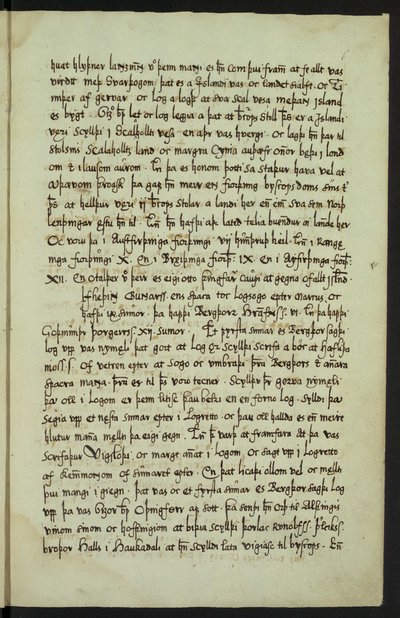 huat hlyþner landzm̄n vͦ þeim mańi es hn̄ com þui fram at fe allt vas
virdtt meþ Svarþogom þat es a Jslandi vas oc landet sialft. oc Ti-
unþer af gervar oc log a logþ at sva scal vesa meþan Jsland
es bygt. Giz̄ bp̄ let oc log leggia a þat at bp̄s stoll þss er a Jslandi
veri scylldi i Scalhollti vesa en aþr vas hvergi. oc lagþi hn̄ þar til
stolsins Scalahollts land oc margra Cynia auþæfi ońor beþi i lond
om ⁊ i lausom aurom. En þa es honom þotti sa staþur hava vel at
auþævom þroask þa gaf hn̄ meir en fiorþung byscops doms sins til
þss at hellþur veri ij byscops stolar a landi her en ein̄ sva sem Norþ
lenþingar estu hn̄ til. En̄ hn̄ hafþi aþr lateþ telia buendur a lande her
oc voru þa i Austfirþinga fiorþungi vij hunþruþ heil. En̄ i Range
inga fiorþungi X. en i Breiþfirþinga fiorþ. IX. En i Eyfirþinga fiorþ.
XII. En otalþer vͦ þeir es eigi otto þingfarar caupi at gegna of allt island.
Ulfheþin Gunarss. ens spaca toc logsogo epter Marcus. oc
hafþi ix sumor. þa hafþi Bergþorr Hrafnss. vi. En þa hafþi
Goþmundr þorgeirss. xij. sumor. Et fyrsta sumar es Bergþor sagþi
log upp vas nymeli þat giort at log or scylldi scrifa a boc at Hafliþa
mos.s.s. of vetren epter at sogo oc umbraþi þeira Bergþors oc ańara
spacra mańa. þeira es til þss voro tecner. Scylldu þeir gerva nymeli
þau oll i logom er þeim litisc þau betri en en forno log. Scylldi þau
segia upp et nesta sumar epter i Logretto. oc þau oll hallda es en̄ meire
hlutur mańa mellti þa eigi gegn. En̄ þat varþ at framfara at þa vas
scrifaþur Vigsloþi oc margt ańat i logom oc sagt upp i Logretto
af Kennimońom of sumaret epter. En þat licaþi ollom vel oc mellti
þui mangi i giegn. þat vas oc et fyrsta sumar es Bergþor sagþi log
upp þa vas Gizor bp̄ oþingførr af sott. þa sendi hn̄ orþ til Alþingis
vinom sinom oc hofþingiom at biþia scylldi þorlac Runolfss. þleikss.
broþor Halls i Haukadali at hn̄ scylldi lata vigiasc til byscops. En̄